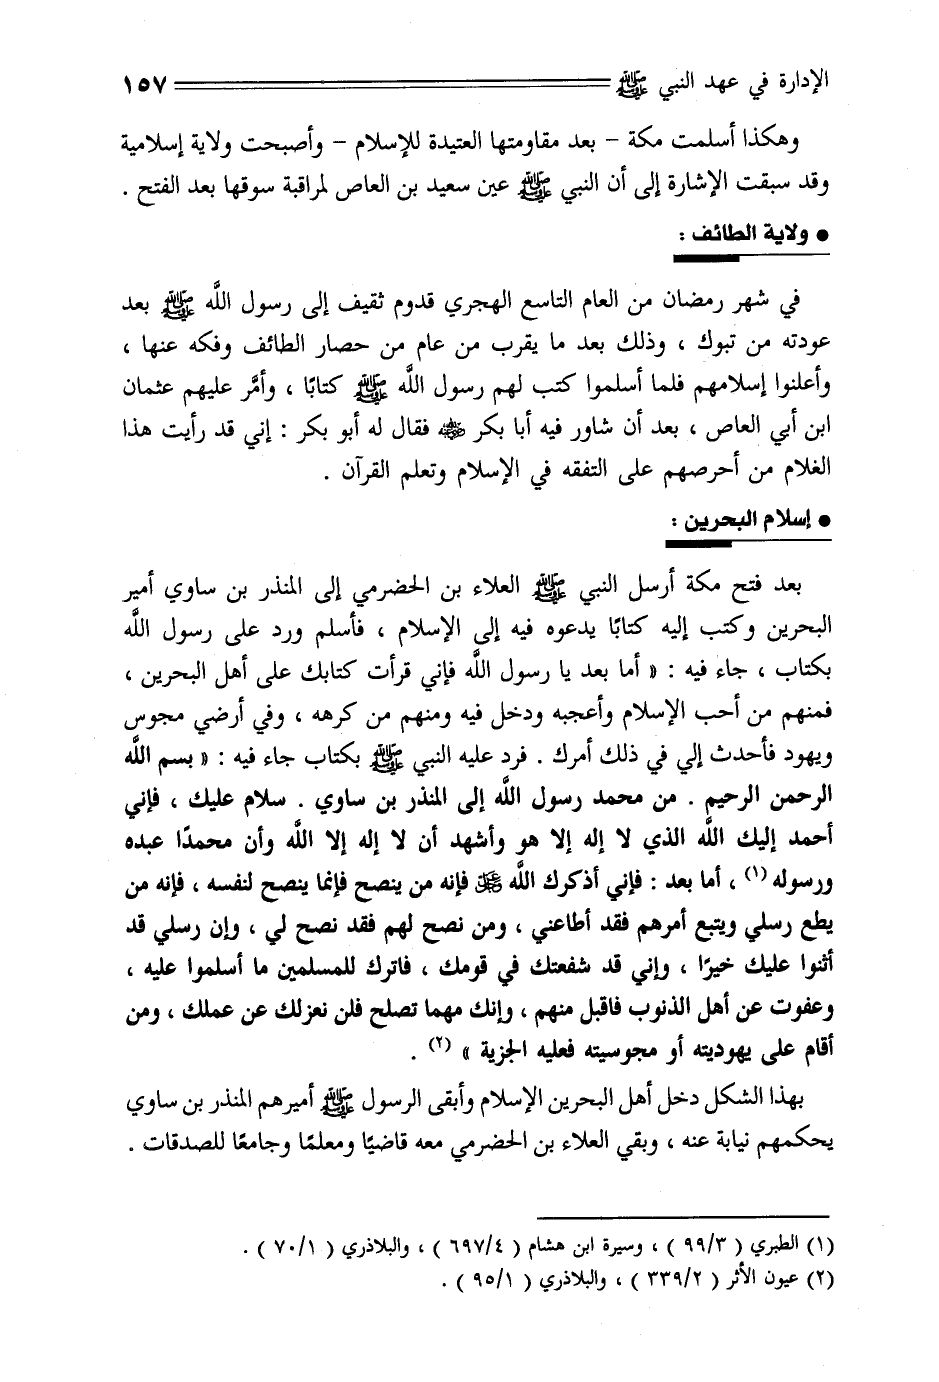 الإدارة في عهد النبي ﷺ ١٥٧
وهكذا أسلمت مكة – بعد مقاومتها العتيدة للإسلام – وأصبحت ولاية إسلامية
وقد سبقت الإشارة إلى أن النبي ﷺ عين سعيد بن العاص لمراقبة سوقها بعد الفتح .
● ولاية الطائف :
في شهر رمضان من العام التاسع الهجري قدوم ثقيف إلى رسول اللَّه ﷺ بعد
عودته من تبوك ، وذلك بعد ما يقرب من عام من حصار الطائف وفكه عنها ،
وأعلنوا إسلامهم فلما أسلموا كتب لهم رسول اللَّه ﷺ كتابًا ، وأمَّر عليهم عثمان
ابن أبي العاص ، بعد أن شاور فيه أبا بكر ﵁ فقال له أبو بكر : إني قد رأيت هذا
الغلام من أحرصهم على التفقه في الإسلام وتعلم القرآن .
● إسلام البحرين :
بعد فتح مكة أرسل النبي ﷺ العلاء بن الحضرمي إلى المنذر بن ساوي أمير
البحرين وكتب إليه كتابًا يدعوه فيه إلى الإسلام ، فأسلم ورد على رسول اللَّه
بكتاب ، جاء فيه : « أما بعد يا رسول اللَّه فإني قرأت كتابك على أهل البحرين ،
فمنهم من أحب الإسلام وأعجبه ودخل فيه ومنهم من كرهه ، وفي أرضي مجوس
ويهود فأحدث إلي في ذلك أمرك . فرد عليه النبي ﷺ بكتاب جاء فيه : « بسم اللَّه
الرحمن الرحيم . من محمد رسول اللَّه إلى المنذر بن ساوي . سلام عليك ، فإني
أحمد إليك اللَّه الذي لا إله إلا هو وأشهد أن لا إله إلا اللَّه وأن محمدًا عبده
ورسوله (١) ، أما بعد : فإني أذكرك اللَّه ﷻ فإنه من ينصح فإنما ينصح لنفسه ، فإنه من
يطع رسلي ويتبع أمرهم فقد أطاعني ، ومن نصح لهم فقد نصح لي ، وإن رسلي قد
أثنوا عليك خيرًا ، وإني قد شفعتك في قومك ، فاترك للمسلمين ما أسلموا عليه ،
وعفوت عن أهل الذنوب فاقبل منهم ، وإنك مهما تصلح فلن نعزلك عن عملك ، ومن
أقام على يهوديته أو مجوسيته فعليه الجزية » (٢) .
بهذا الشكل دخل أهل البحرين الإسلام وأبقى الرسول ﷺ أميرهم المنذر بن ساوي
يحكمهم نيابة عنه ، وبقي العلاء بن الحضرمي معه قاضيًا ومعلمًا وجامعًا للصدقات .
(١) الطبري ( ٩٩/٣ ) ، وسيرة ابن هشام ( ٦٩٧/٤ ) ، والبلاذري ( ٧٠/١ ) .
(٢) عيون الأثر ( ٣٣٩/٢ ) ، والبلاذري ( ٩٥/١ ) .